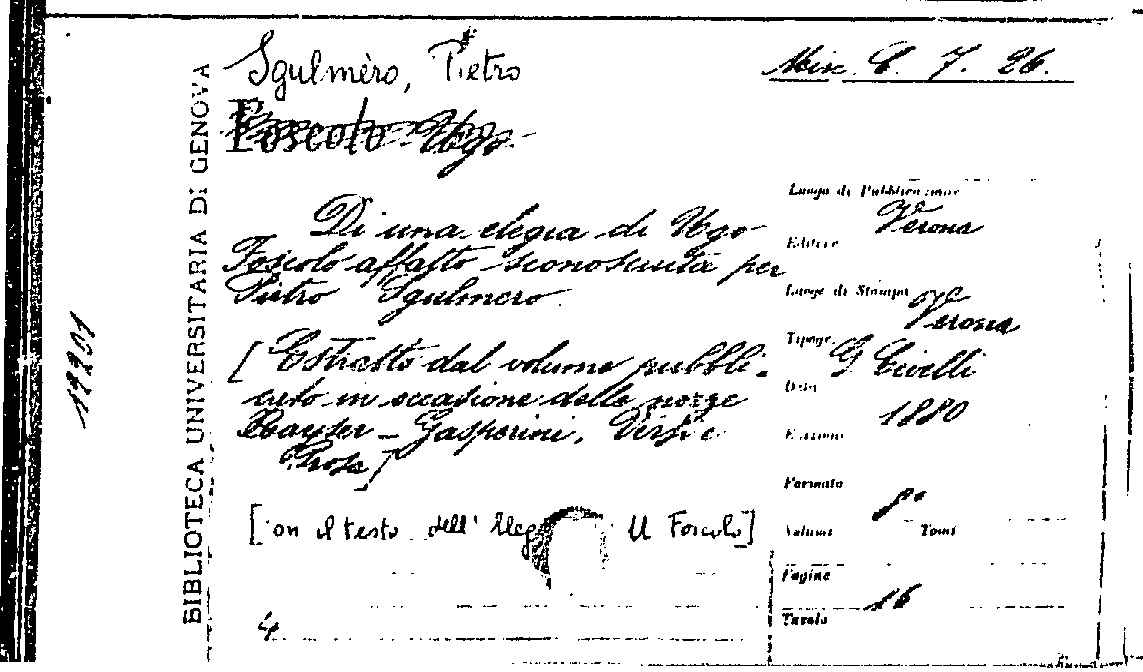 Sgulmèro, Pietro
Misc. C. 7. 26.
Foscolo Ugo
Di una elegia di Ugo
Foscolo affatto sconosciuta per
Pietro Sgulmero.
[Estratto dal volume pubbli-
cato in occasione delle nozze
Gasperini, Versi e
Prosa]
[con il testo dell' U Foscolo]
4
BIBLIOTECA UNIVERSITARIA DI GENOVA
Luogo di Pubblicazione
Verona
Editore
Luogo di Stampa
Verona
Tipogr.
G Civelli
Data
1880
Edizione
Formato
8°
Volumi Tomi
Pagine
16
Tavole